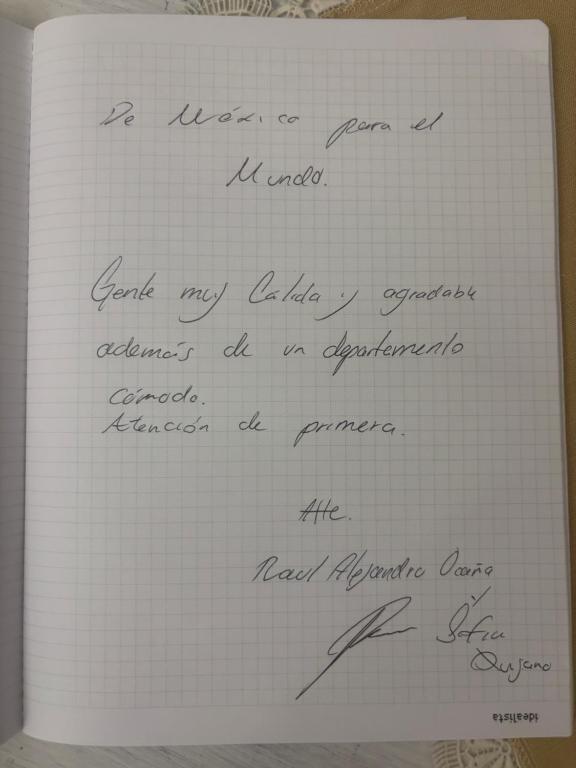 De México para el
Mundo.
Gente muy Cálida y agradable
además de un departamento
cómodo.
Atención de primera.
Atte.
Raul Alejandro Ocaña
y
Sofia
Quijano
idealista